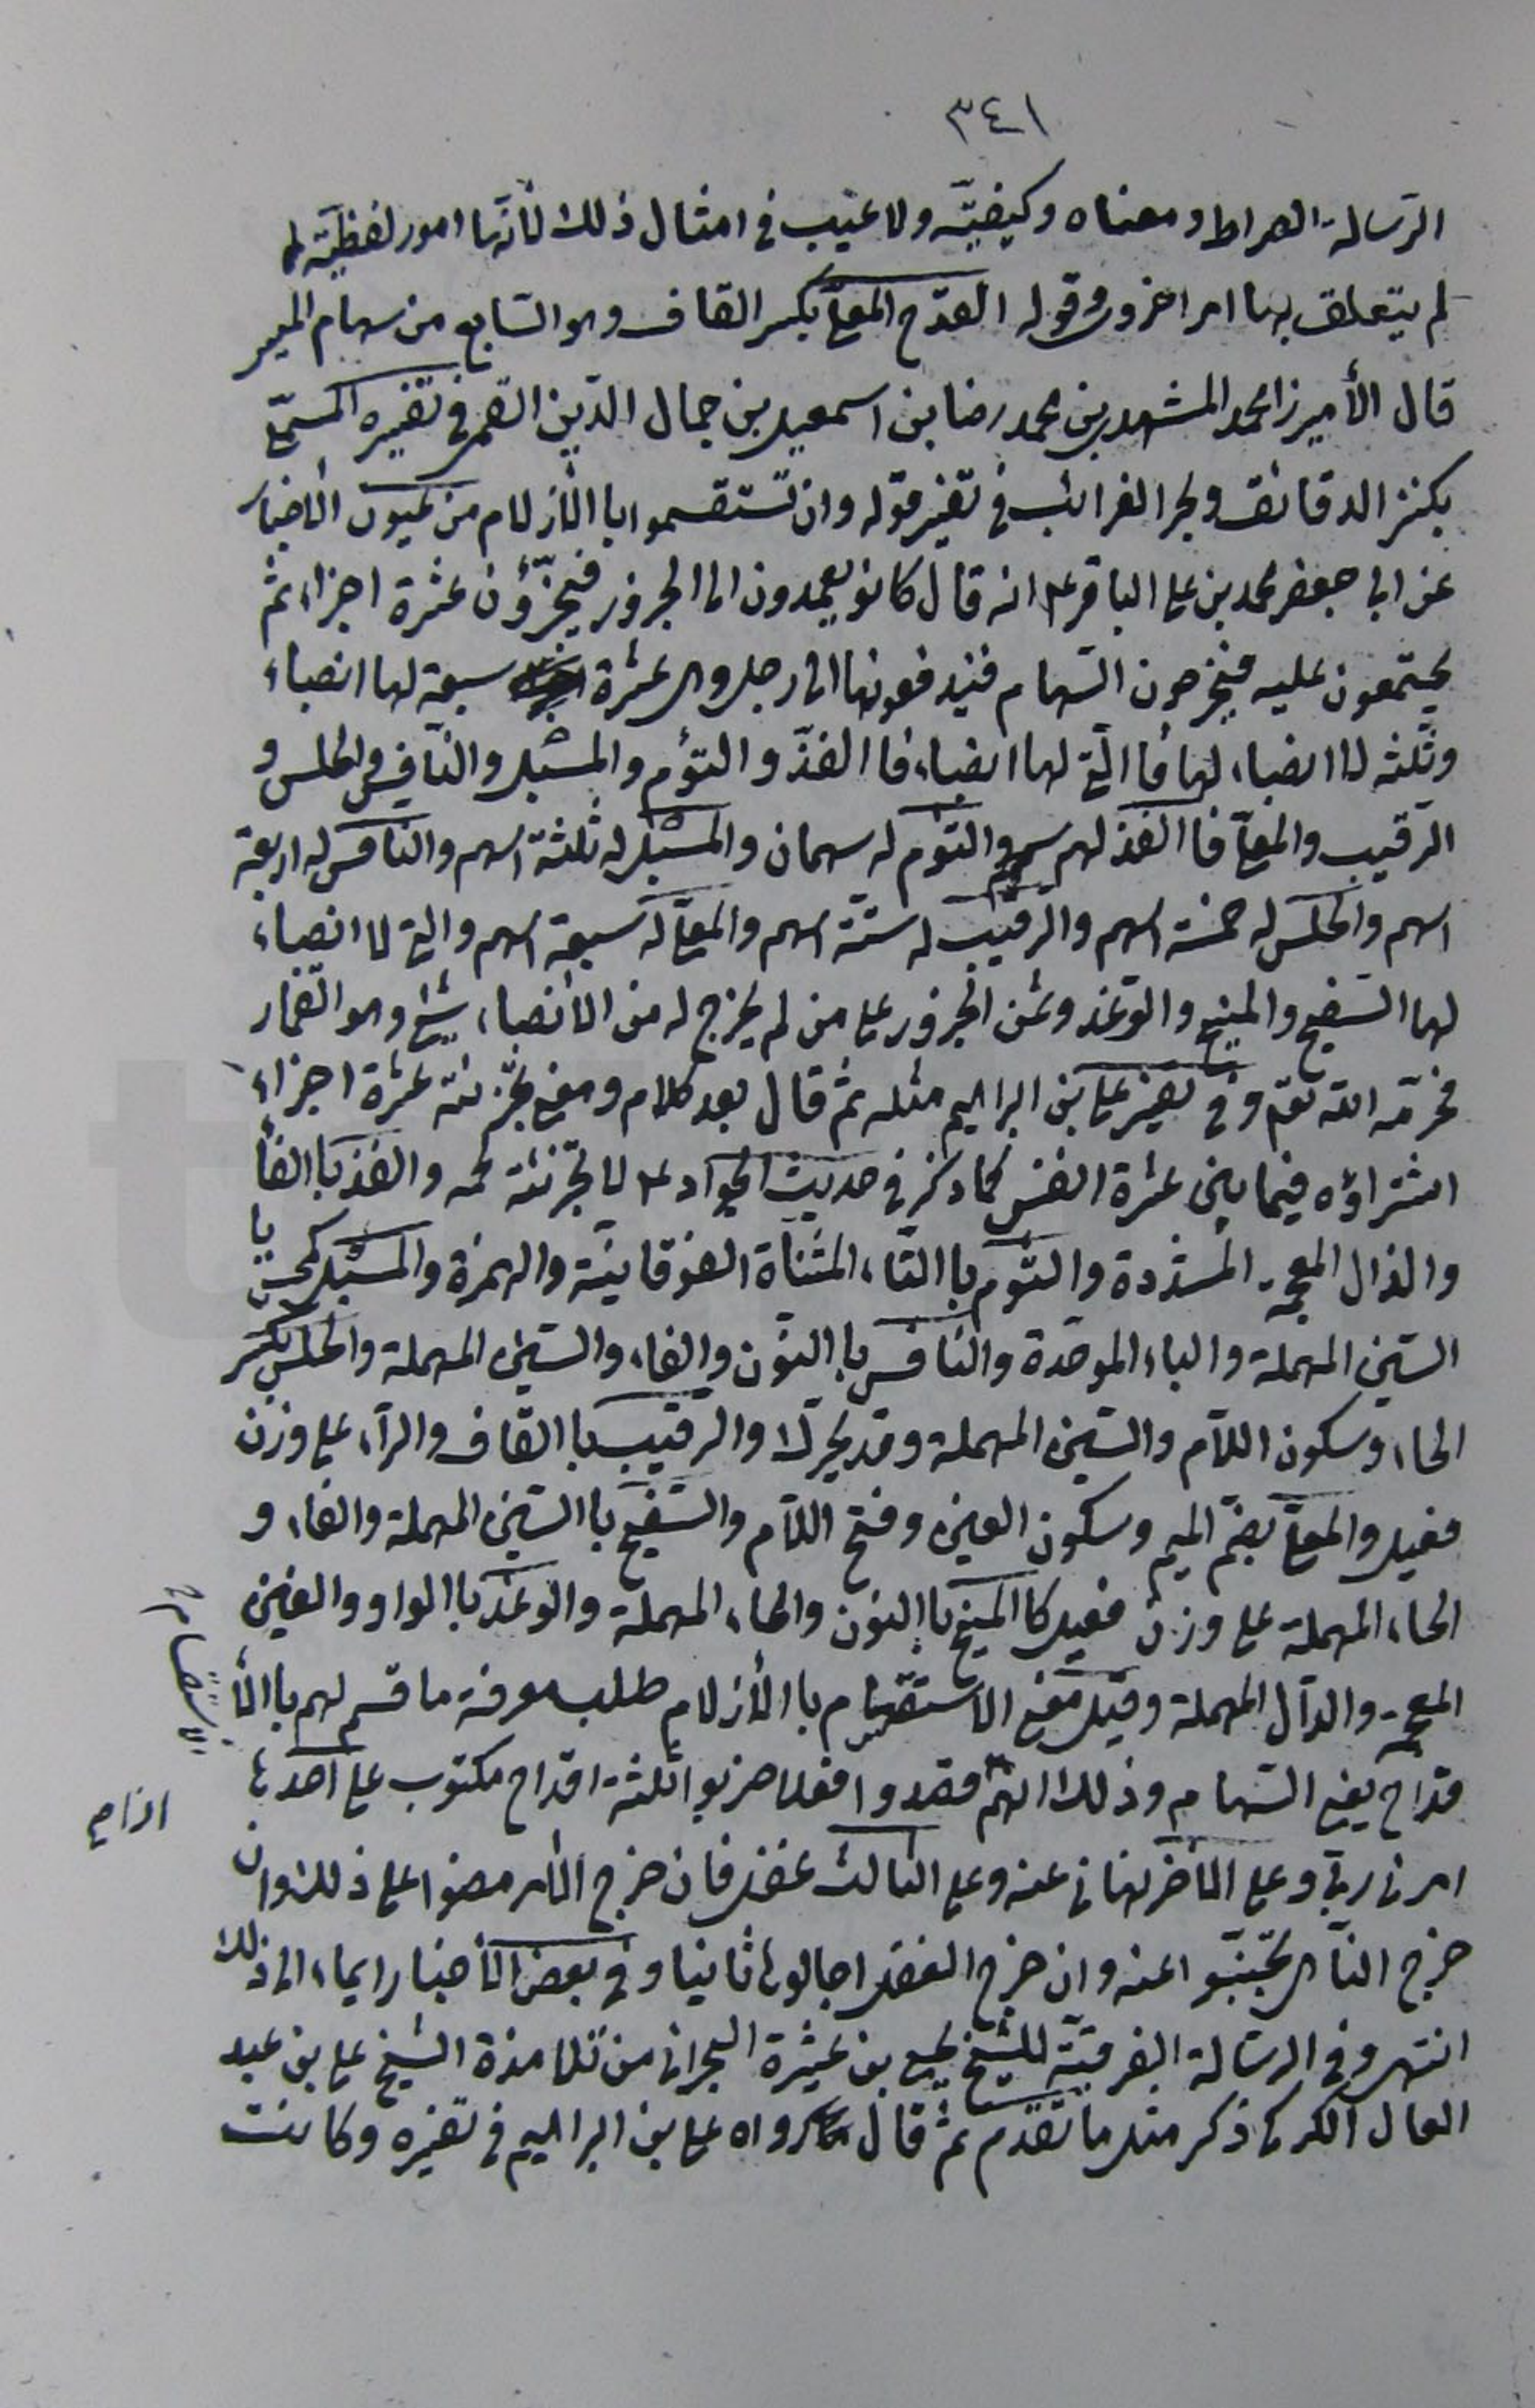 ٣٤١
الرسالة الصراط ومعناه وكيفيّته ولا عيب في امثال ذلك لأنّها امور لفظيّة لما
لم يتعلق بها امر اخروى قوله القدح المعلّى بكسر القاف وهو السّابع من سهام الميسر
قال الأميرزا محمد المشهدى بن محمد رضا بن اسمعيل بن جمال الدّين القمى في تفسيره المسمّى
بكنز الدقائق وبحر الغرائب في تفسير قوله وان تستقسموا باالأزلام من عيون الأخبار
عن ابى جعفر محمد بن على الباقر ع انه قال كانو يعمدون الى الجزور فيجزّؤن عشرة اجزاء ثم
يجتمعون عليه فيخرجون السّهام فيدفعونها الى رجل وهى عشرة سبعة لها انصباء
وثلثه لا انصباء لها فا الّتى لها انصباء فا الفذّ والتوْم والمسبل والنّافس والحلس و
الرّقيب والمعلّى فا الفذ لهم سهم والتوْم له سهمان والمسبل له ثلثة اسهم والنافس له اربعة
اسهم والحلس له خمسة اسهم والرّقيب له ستّة اسهم والمعلّى له سبعة اسهم والتى لا انصباء
لها السّفيح والمنيح والوغد وثمن الجزور على من لم يخرج له من الأنصباء شئ وهو القمار
فحرّمه الله تعم وفي تفسير على بن ابراهيم مثله ثم قال بعد كلام ومعنى تجزئته عشرة اجزاء
اشتراؤه فيما بين عشرة انفس كما ذكر في حديث الجواد ع لا تجزئة لحمه والفذ باالفأ
والذال المعجمة المشدّدة والتوْم باالتّاء المثنّاة الفوقانيّة والهمزة والمسبل كمحسن با
السّين المهملة والباء الموحّدة والنّافس باالنّون والفاء والسّين المهملة والحلس بكسر
الحاء وسكون اللّام والسّين المهملة وقد يحرك والرقيب باالقاف والرّاء على وزن
فعيل والمعلّى بضمّ الميم وسكون العين وفتح اللّام والسّفيح باالسّين المهملة والفاء و
الحاء المهملة على وزن فعيل كاالمنيح باالنون والحاء المهملة والوغد باالواو والغين
المعجمة والدّال المهملة وقيل معنى الاستقسام باالأزلام طلب معرفة ما قسم لهم باالأ
قداح يعنى السّهام وذلك انّهم قصدوا فعلا ضربوا ثلثة اقداح مكتوب على احدها
امرنى ربّى وعلى الأخر نهانى عنه وعلى الثالث غفل فان خرج الأمر مضوا على ذلك وان
خرج النّاهى تجنّبوا عنه وان خرج الغفل اجالوها ثانيا وفي بعض الأخبار ايماء الى ذلك
انتهى وفي الرسالة الفرقيّة للشيخ يحيى بن عشيرة البحرانى من تلامذة الشيخ على بن عبد
العال الكركى ذكر مثل ما تقدم ثم قال رواه على بن ابراهيم في تفسيره وكانت